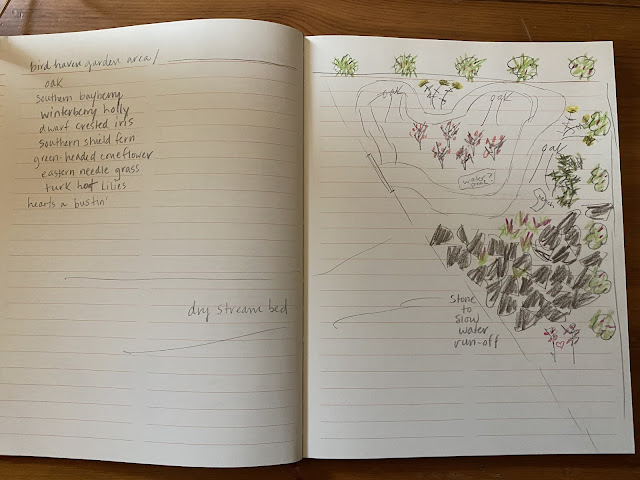 bird haven garden area/
oak
southern bayberry
winterberry holly
dwarf crested iris
southern shield fern
green-headed coneflower
eastern needle grass
turk hat Lilies
hearts a bustin'
dry stream bed
oak
oak
oak
water?
stone
to
slow
water
run-off